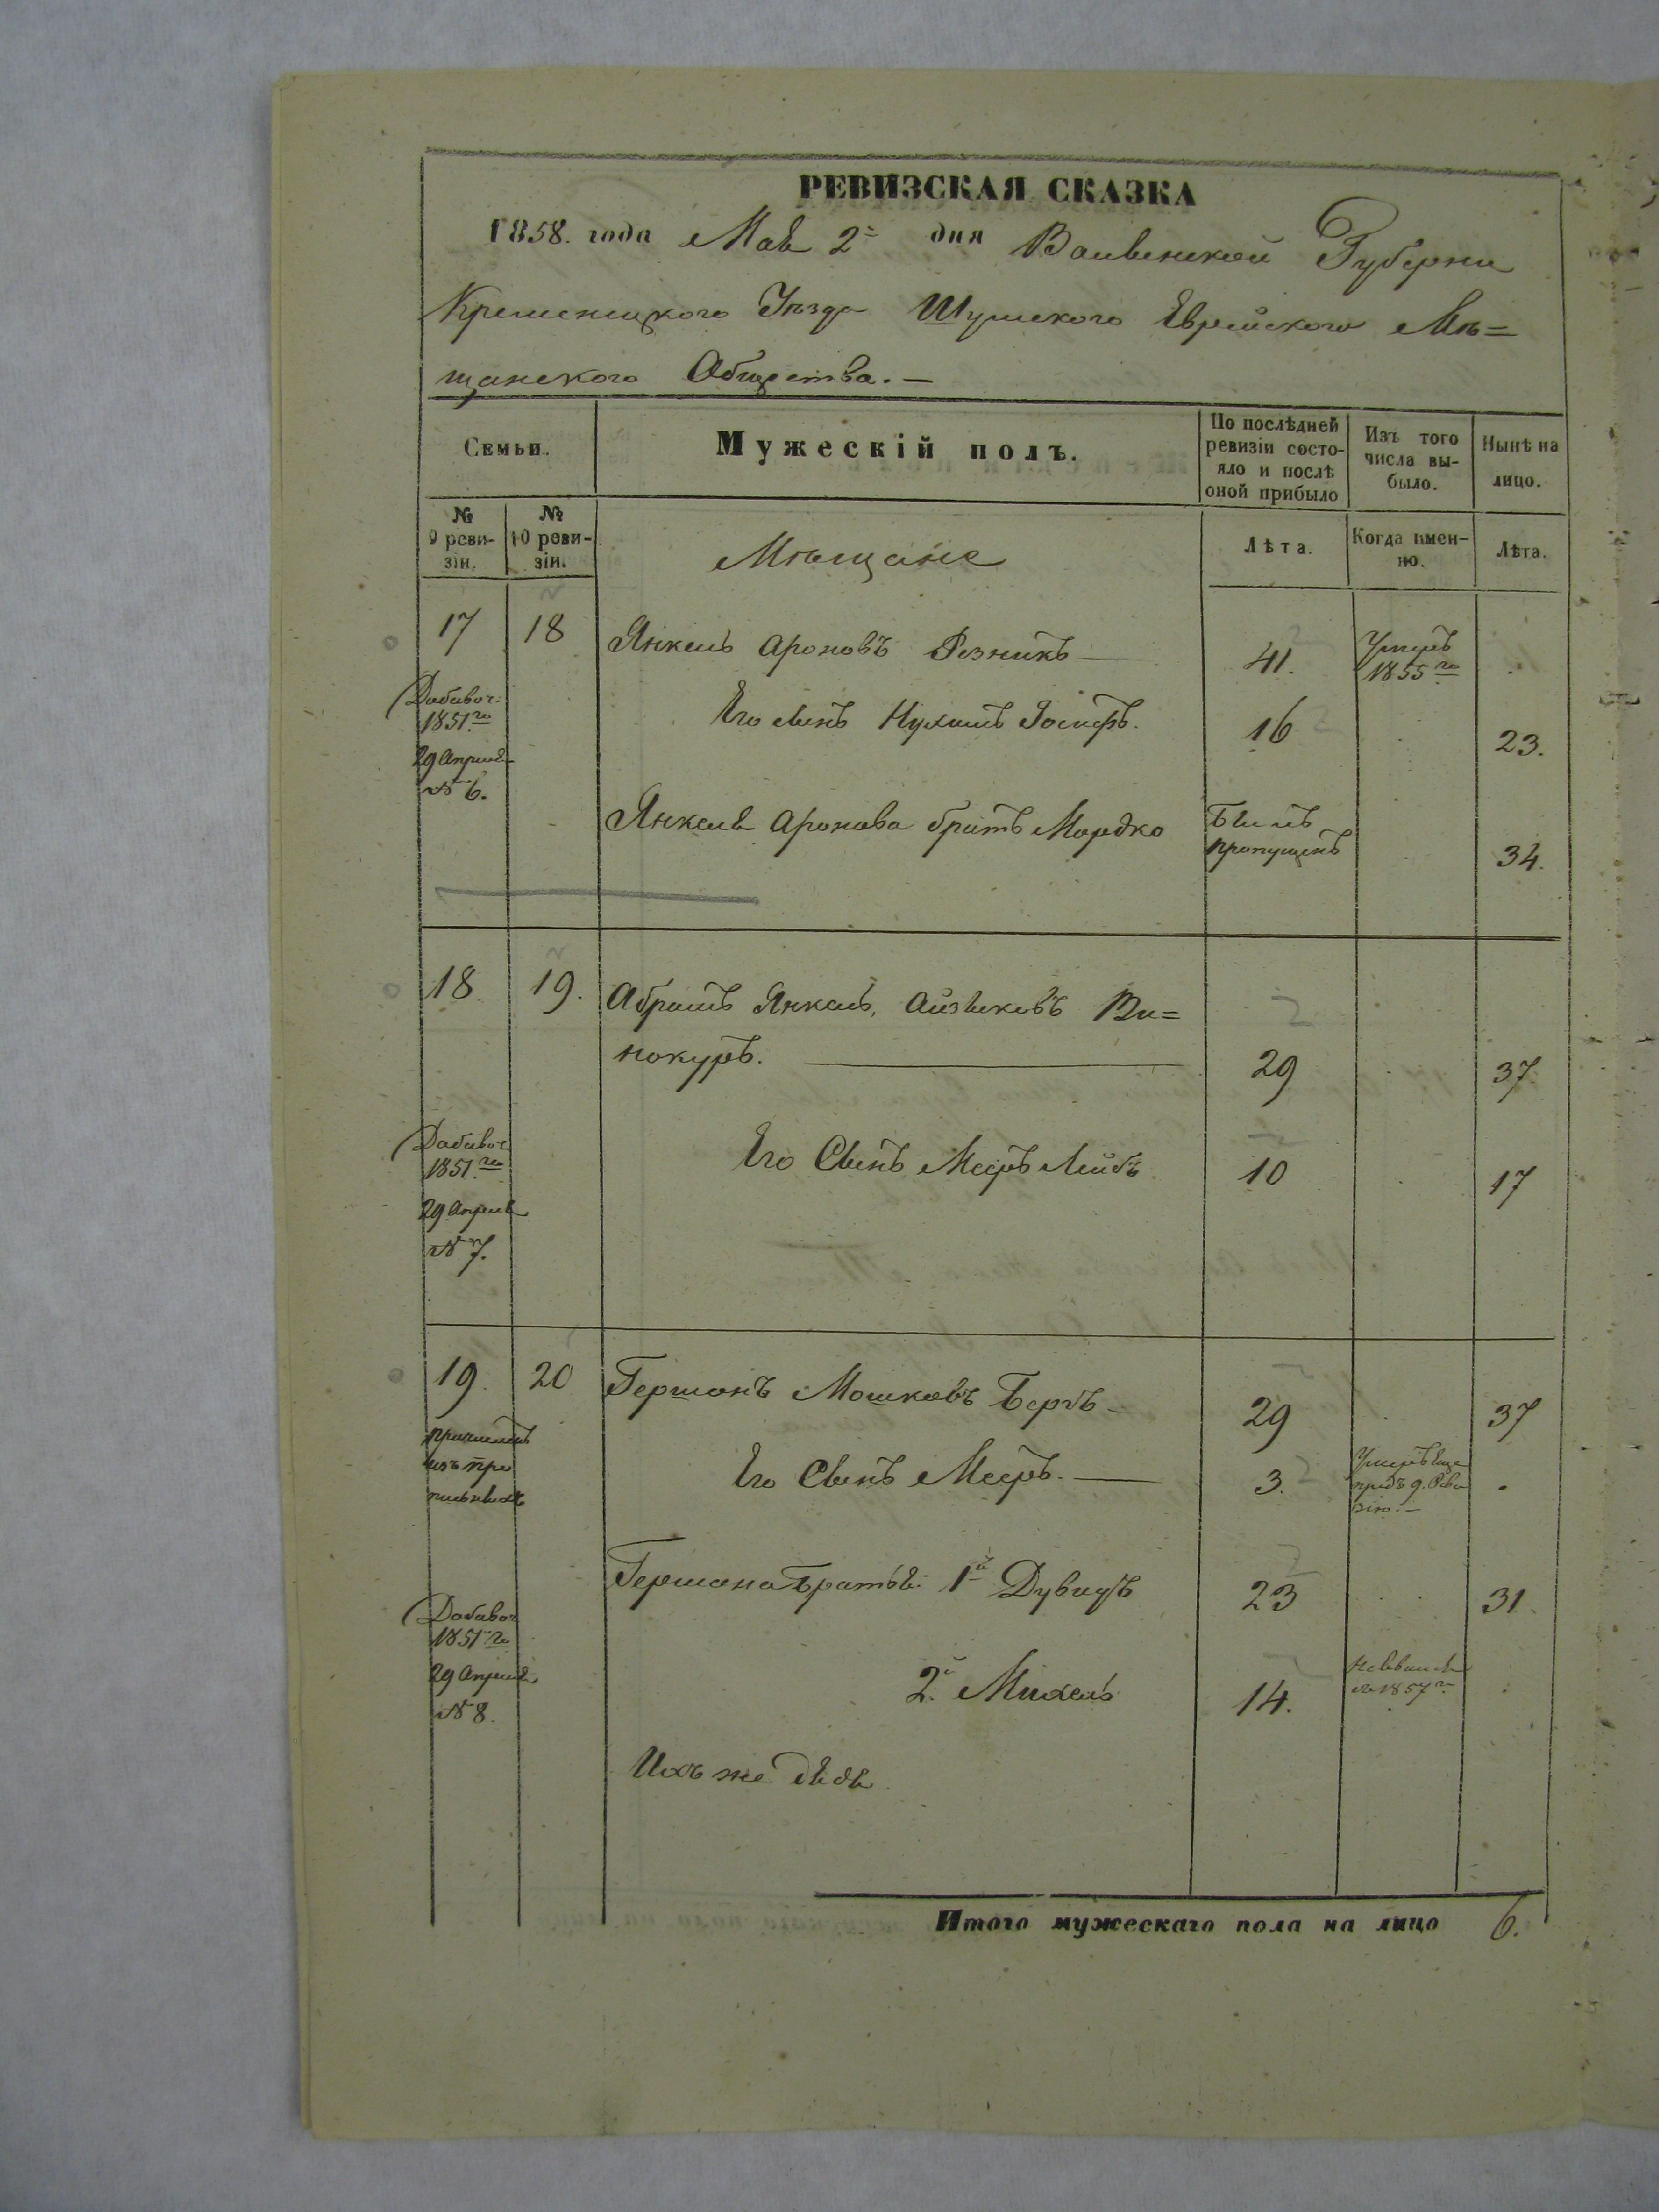 РЕВИЗСКАЯ СКАЗКА
1858. года Мая 2го дня Волынской Губерни
Кременецкого Уѣзда Шумского Еврейского Мѣ=
щанского Общества.—
Семьи.
Мужескій полъ.
По послѣдней ревизіи состо-
яло и послѣ
оной прибыло
Изъ того
числа вы-
было.
Нынѣ на
лицо.
№
9 реви-
зіи.
№
10 реви-
зіи.
Мѣщане
Лѣта.
Когда имен-
но.
Лѣта.
17 18 Янкель Ароновъ Резникъ— 41. Умеръ
1855го
Добавоч:
1851го
29 Апреля
№ 6.
Его сынъ Нухимъ Іосифъ. 16 23.
Янкеля Аронова братъ Мордко Былъ
пропущенъ 34.
18 19. Абрамъ Янкель Айзыковъ Ви=
нокуръ.— 29 37.
Добавоч
1851го
29 Апреля
№ 7.
Его Сынъ Мееръ Лейбъ 10 17
19. 20 Гершонъ Мошковъ Бергъ— 29 37
Его Сынъ Мееръ.— 3. Умеръ еще
предъ 9. Реви
зіею.—
Гершона братья: 1й Дувидъ 23 31.
Добавоч
1851го
29 Апреля
№ 8.
2й Михель 14. 1857го
Ихъ же дядя
Итого мужескаго пола на лицо 6.